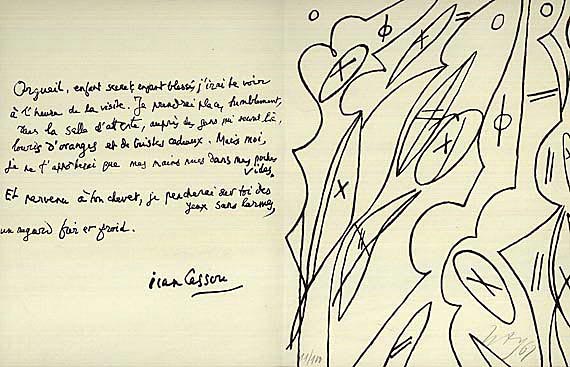 Orgueil, enfant secret, enfant blessé, j'irai te voir
à l'heure de la visite. Je prendrai place, humblement,
dans la salle d'attente, auprès des gens qui seront là,
lourds d'oranges et de tristes cadeaux. Mais moi,
je ne t'apporterai que mes mains nues dans mes poches
vides.
Et parvenu à ton chevet, je pencherai sur toi des
yeux sans larmes,
un regard fixe et froid.
Jean Cassou